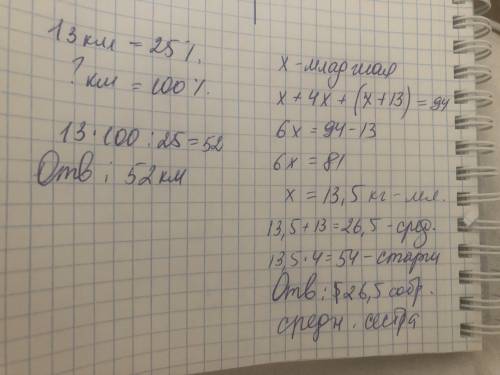 13 км = 25%.
? км = 100%.
13·100:25=52
Отв: 52 км
x - младшая
x + 4x + (x+13) = 94
6x = 94-13
6x = 81
x = 13,5 кг - мл.
13,5+13=26,5 - сред.
13,5·4=54 - старш
Отв: 26,5 собр.
средн. сестра